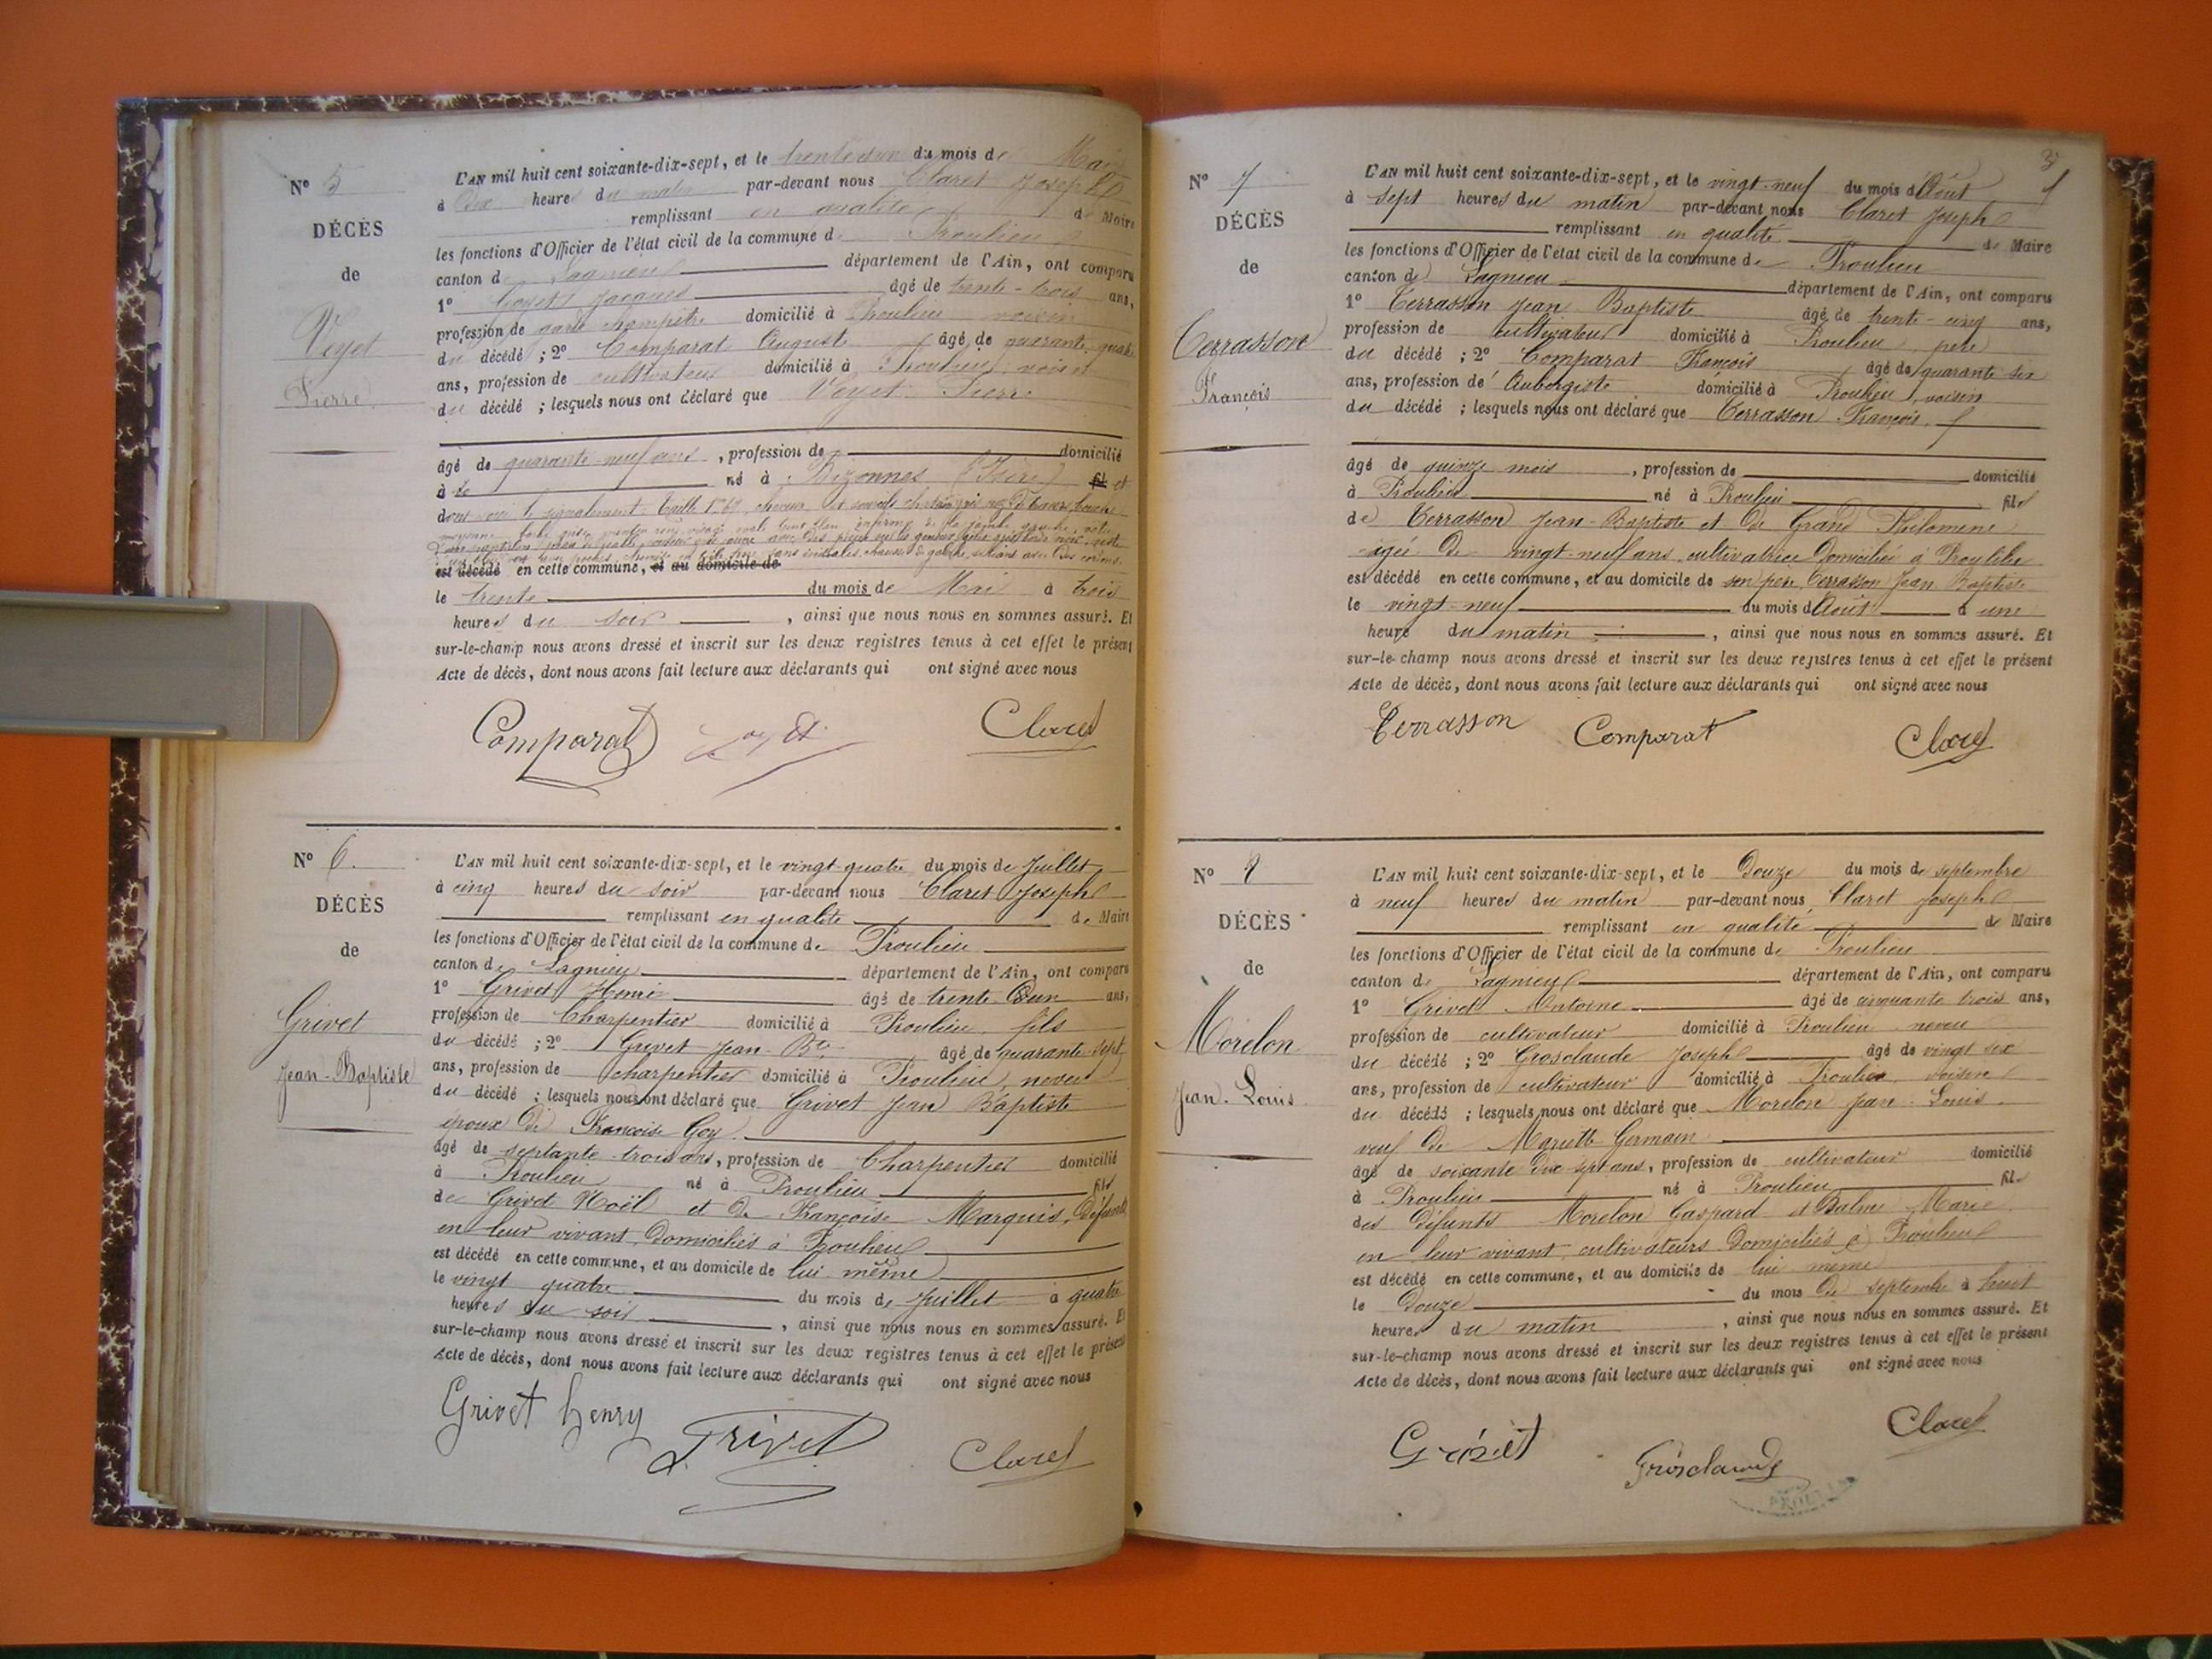 N° 5
DÉCÈS
de
Veyet
Pierre
L'AN mil huit cent soixante-dix-sept, et le trente et un du mois de Mai
à dix heures du matin par-devant nous Claret Joseph
remplissant en qualité de Maire
les fonctions d'Officier de l'état civil de la commune de Proulieu
canton de Lagnieu département de l'Ain, ont comparu
1° Goyet Jacques âgé de trente-trois ans,
profession de garde champêtre domicilié à Proulieu voisin
du décédé ; 2° Comparat Auguste âgé de quarante-quatre
ans, profession de cultivateur domicilié à Proulieu, voisin
du décédé ; lesquels nous ont déclaré que Veyet Pierre
âgé de quarante-neuf ans, profession de domicilié
à né à Bizonnes (Isère) fil et
dont voici le signalement. Taille cheveux et sourcils
est décédé en cette commune, et au domicile de
le trente du mois de Mai à trois
heures du soir, ainsi que nous nous en sommes assuré. Et
sur-le-champ nous avons dressé et inscrit sur les deux registres tenus à cet effet le présent
Acte de décès, dont nous avons fait lecture aux déclarants qui ont signé avec nous
Comparat Claret
N° 6.
DÉCÈS
de
Grivet
Jean-Baptiste
L'AN mil huit cent soixante-dix-sept, et le vingt-quatre du mois de Juillet
à cinq heures du soir par-devant nous Claret Joseph
remplissant en qualité de Maire
les fonctions d'Officier de l'état civil de la commune de Proulieu
canton de Lagnieu département de l'Ain, ont comparu
1° Grivet Henri âgé de trente-un ans,
profession de Charpentier domicilié à Proulieu fils
du décédé ; 2° Grivet Jean-Bte âgé de quarante-sept
ans, profession de charpentier domicilié à Proulieu, neveu
du décédé ; lesquels nous ont déclaré que Grivet Jean Baptiste
époux de Françoise Goy
âgé de septante-trois ans, profession de Charpentier domicilié
à Proulieu né à Proulieu fils
de Grivet Noël et de Françoise Marquis, défunts
en leur vivant, domiciliés à Proulieu
est décédé en cette commune, et au domicile de lui même
le vingt quatre du mois de Juillet à quatre
heures du soir, ainsi que nous nous en sommes assuré. Et
sur-le-champ nous avons dressé et inscrit sur les deux registres tenus à cet effet le présent
Acte de décès, dont nous avons fait lecture aux déclarants qui ont signé avec nous
Grivet henry Grivet Claret
N° 7
DÉCÈS
de
Terrasson
François
L'AN mil huit cent soixante-dix-sept, et le vingt-neuf du mois d'Août
à sept heures du matin par-devant nous Claret Joseph
remplissant en qualité de Maire
les fonctions d'Officier de l'état civil de la commune de Proulieu
canton de Lagnieu département de l'Ain, ont comparu
1° Terrasson Jean Baptiste âgé de trente-cinq ans,
profession de cultivateur domicilié à Proulieu père
du décédé ; 2° Comparat François âgé de quarante six
ans, profession de Aubergiste domicilié à Proulieu, voisin
du décédé ; lesquels nous ont déclaré que Terrasson François
âgé de quinze mois, profession de domicilié
à Proulieu né à Proulieu fils
de Terrasson Jean-Baptiste et de Grand Philomène
agée de vingt-neuf ans, cultivatrice domiciliée à Proulieu
est décédé en cette commune, et au domicile de son père, Terrasson Jean Baptiste
le vingt-neuf du mois d'Août à une
heure du matin, ainsi que nous nous en sommes assuré. Et
sur-le-champ nous avons dressé et inscrit sur les deux registres tenus à cet effet le présent
Acte de décès, dont nous avons fait lecture aux déclarants qui ont signé avec nous
Terrasson Comparat Claret
N° 8
DÉCÈS
de
Morelon
Jean-Louis
L'AN mil huit cent soixante-dix-sept, et le Douze du mois de septembre
à neuf heures du matin par-devant nous Claret Joseph
remplissant en qualité de Maire
les fonctions d'Officier de l'état civil de la commune de Proulieu
canton de Lagnieu département de l'Ain, ont comparu
1° Grivet Antoine âgé de cinquante trois ans,
profession de cultivateur domicilié à Proulieu neveu
du décédé ; 2° Grosclaude Joseph âgé de vingt six
ans, profession de cultivateur domicilié à Proulieu, voisin
du décédé ; lesquels nous ont déclaré que Morelon Jean-Louis.
veuf de Mariette Germain
âgé de soixante dix sept ans, profession de cultivateur domicilié
à Proulieu né à Proulieu fils
des défunts Morelon Gaspard et Balme Marie
en leur vivant, cultivateurs domiciliés à Proulieu
est décédé en cette commune, et au domicile de lui même
le Douze du mois de septembre à huit
heures du matin, ainsi que nous nous en sommes assuré. Et
sur-le-champ nous avons dressé et inscrit sur les deux registres tenus à cet effet le présent
Acte de décès, dont nous avons fait lecture aux déclarants qui ont signé avec nous
Grivet Grosclaude Claret